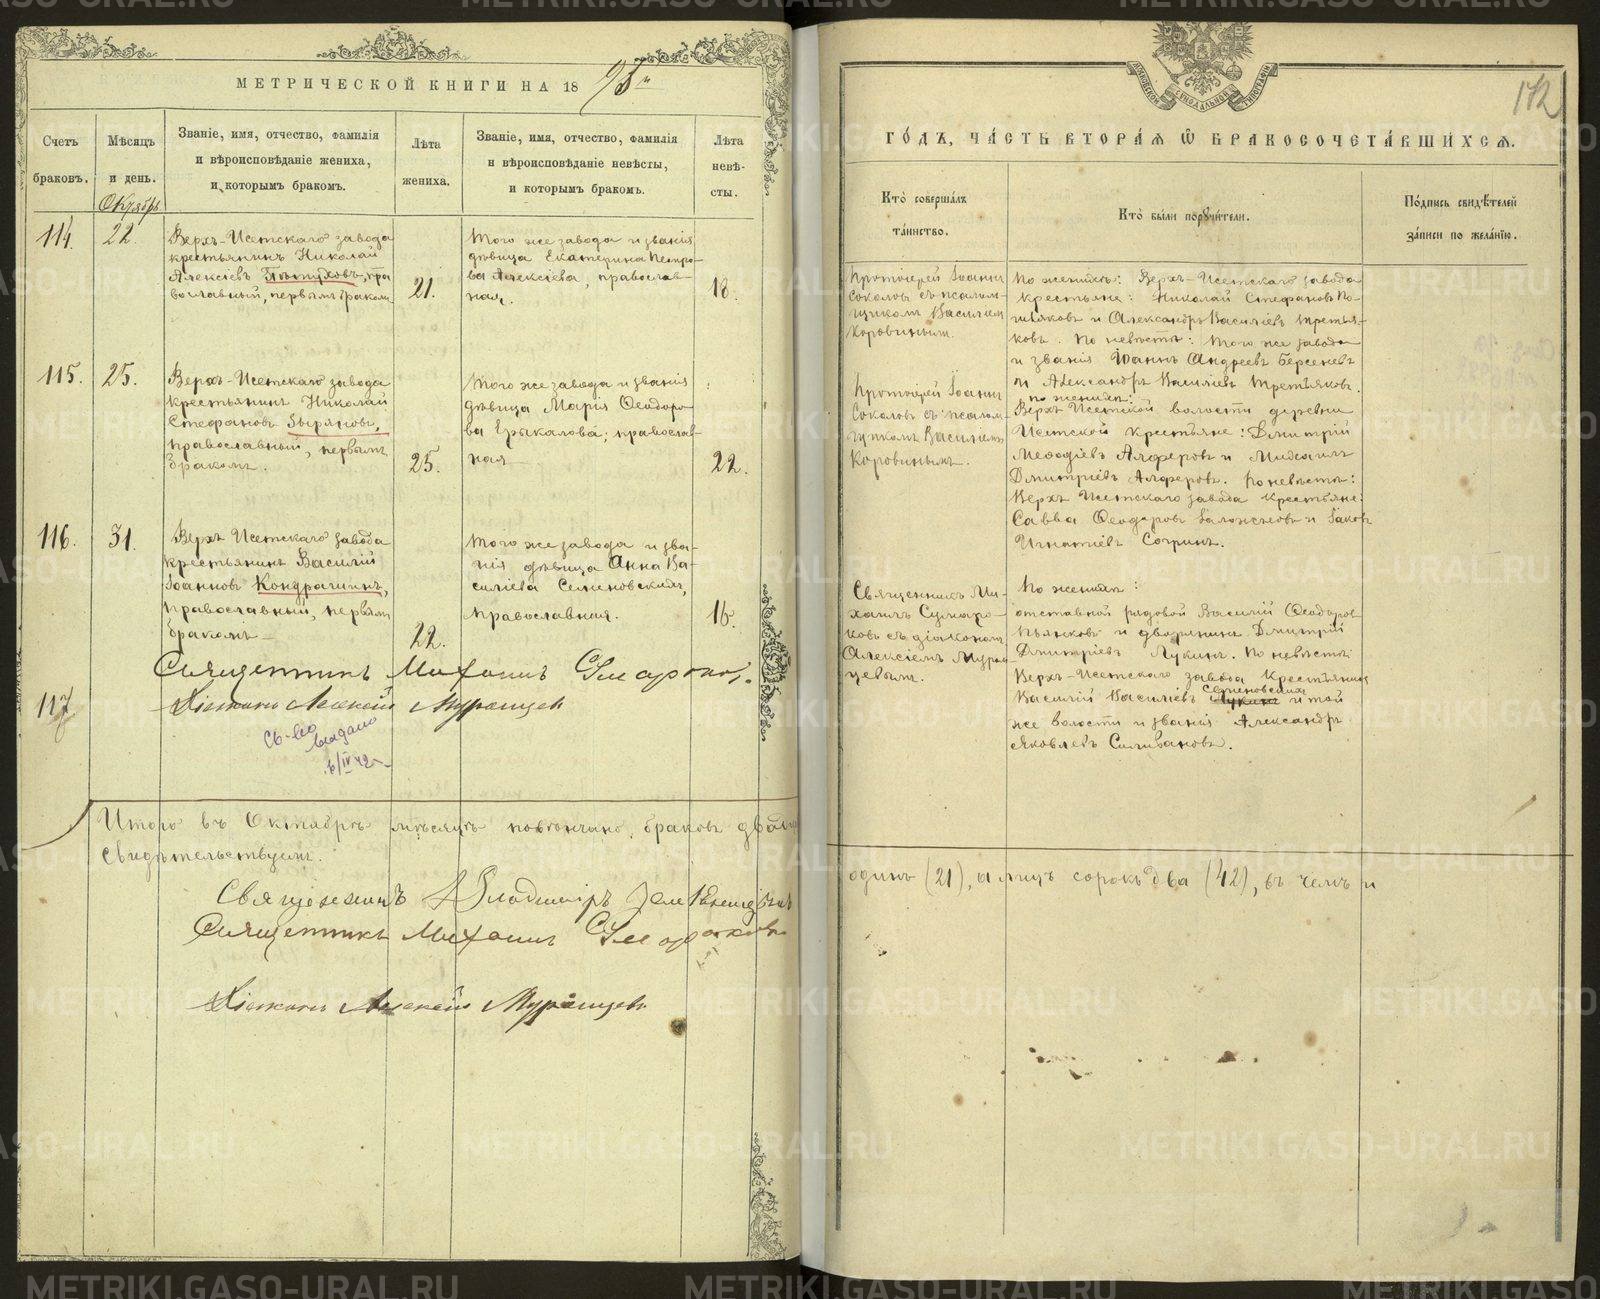 МЕТРИЧЕСКОЙ КНИГИ НА 18
Счетъ
браковъ.
Мѣсяцъ
и день.
Октябрь
Званіе, имя, отчество, фамилія
и вѣроисповѣданіе жениха,
и которымъ бракомъ.
Лѣта
жениха.
Званіе, имя, отчество, фамилія
и вѣроисповѣданіе невѣсты,
и которымъ бракомъ.
Лѣта
невѣ-
сты.
114.
22.
Верхъ-Исетскаго завода
крестьянинъ Николай
Алексіевъ Пѣтуховъ, пра
вославный, первымъ бракомъ.
21.
Того же завода и званія
дѣвица Екатерина Петро-
ва Алексіева, православ-
ная.
18.
115.
25.
Верхъ-Исетскаго завода
крестьянинъ Николай
Стефановъ Зыряновъ,
православный, первымъ
бракомъ.
25.
Того же завода и званія
дѣвица Марія Ѳеодоро
ва Ерыкалова, православ-
ная
22.
116.
31.
Верхъ Исетскаго завода
крестьянинъ Василій
Іоанновъ Кондрашинъ,
православный, первымъ
бракомъ
22.
Того же завода и зва-
нія дѣвица Анна Ва-
силіева Семеновскихъ,
православная.
16.
Священникъ Михаилъ Сумароковъ.
117
Діаконъ Алексій Мурзинцевъ
Св-во
выдано
6/IV 42
Итого въ Октябрѣ мѣсяцѣ повѣнчано браковъ двадцать
свидѣтельствуемъ.
Священникъ Владиміръ
Священникъ Михаилъ Сумароковъ
Діаконъ Алексій
172
ГОДЪ, ЧАСТЬ ВТОРАЯ Ѿ БРАКОСОЧЕТАВШИХСЯ.
Кто совершалъ
таинство.
Кто были поручители.
Подпись свидѣтелей
записи по желанію.
Протоіерей Іоаннъ
Соколовъ съ псалом-
щикомъ Василіемъ
Коровинымъ.
По женихѣ: Верхъ-Исетскаго завода
крестьяне: Николай Стефановъ По-
и Александръ Василіевъ Третья-
ковъ. По невѣстѣ: того же завода
и званія Іоаннъ Андреевъ Берсеневъ
и Александръ Василіевъ Третьяковъ.
Протоіерей Іоаннъ
Соколовъ съ псалом-
щикомъ Василіемъ
Коровинымъ.
По женихѣ:
Верхъ Исетской волости деревни
Исетской крестьяне: Дмитрій
Меѳодіевъ Алферовъ и Михаилъ
Дмитріевъ Алферовъ. По невѣстѣ:
Верхъ Исетскаго завода крестьяне:
Савва Ѳеодоровъ и Іаковъ
Игнатіевъ Согринъ.
Священникъ Ми-
хаилъ Сумаро-
ковъ съ діакономъ
Алексіемъ Мурзин-
цевымъ.
По женихѣ:
отставной рядовой Василій Ѳеодоровъ
Пьянковъ и дворянинъ Дмитрій
Дмитріевъ Лукинъ. По невѣстѣ:
Верхъ-Исетскаго завода крестьянинъ
Василій Василіевъ Семеновскихъ и той
же волости и званія Александръ
Яковлевъ Селивановъ.
одинъ (21), а лицъ сорокъ два (42), въ чемъ и
METRIKI.GASO-URAL.RU